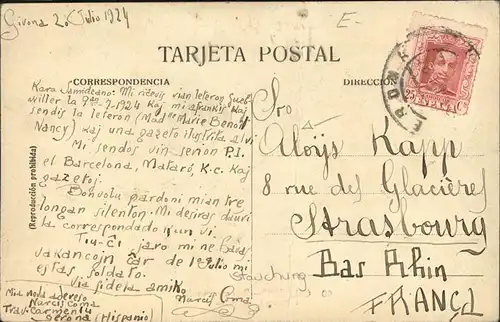 Girona 20 Julio 1924
E-
TARJETA POSTAL
CORRESPONDENCIA
DIRECCIÓN
(Reproducción prohibida)
Kara Samideano: Mi ricevis vian leteron Gueb
willer la 9an-7-1924 Kaj mi afrankis Kaj
sendis la leteron (Madne Marie Benoit
Nancy) Kaj unu gazeto ilustrita al vi
Mi sendos vin serion P.I.
el Barcelona, Mataró, K.c. Kaj
gazetoj.
Bonvolu pardoni mian tre
longan silenton. Mi deziras daŭri
la correspondado kun vi.
Tiu-ĉi jaro mi ne havas
vakancojn ĉar de 1ª Julio mi
estas soldato.
Via fidela amiko
Narcís Coma
Mia nova adreso
Narcís Coma
Trav. Carmen 14
Gerona (Hispanio)
Sro
Aloÿs Kapp
8 rue des Glacières
Strasbourg
Bas Rhin
FRANCE
25 Cs
ESPAÑA